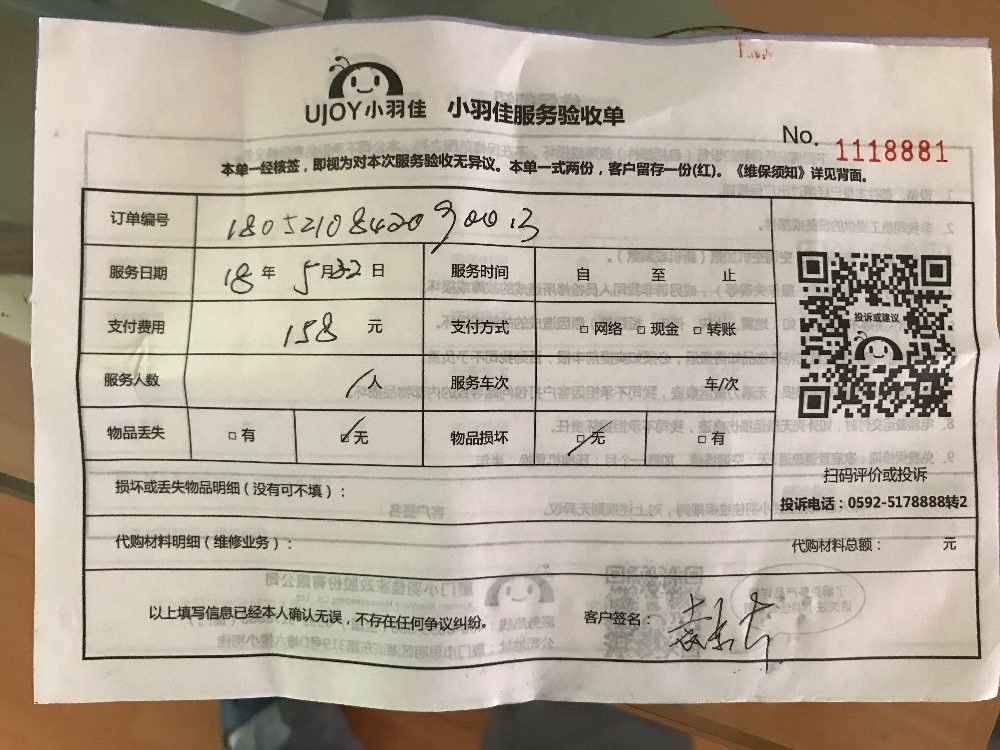 UJOY小羽佳 小羽佳服务验收单
No. 1118881
本单一经核签，即视为对本次服务验收无异议。本单一式两份，客户留存一份(红)。《维保须知》详见背面。
订单编号 18052108420900013
服务日期 18 年 5 月 22 日 服务时间 自 至 止
支付费用 158 元 支付方式 □ 网络 □ 现金 □ 转账
投诉或建议
服务人数 1 人 服务车次 车/次
物品丢失 □ 有 ☑ 无 物品损坏 ☑ 无 □ 有
扫码评价或投诉
损坏或丢失物品明细（没有可不填）：
投诉电话：0592-5178888转2
代购材料明细（维修业务）： 代购材料总额： 元
以上填写信息已经本人确认无误，不存在任何争议纠纷。 客户签名：